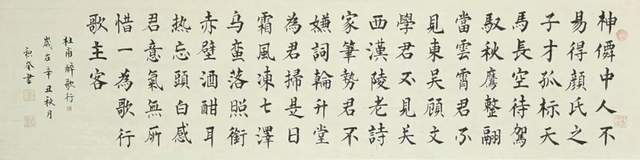 神僊中人不
易得顏氏之
子才孤標天
馬長空待駕
馭秋鷹整翮
當雲霄君不
見東吳顧文
學君不見关
西漢陵老詩
家筆勢君不
嫌詞輪升堂
為君掃是日
霜風凍七澤
烏蛮落照銜
赤壁酒酣耳
熱忘頭白感
君意氣無所
惜一為歌行
歌主客
杜甫 醉歌行
歲在辛丑秋月
書